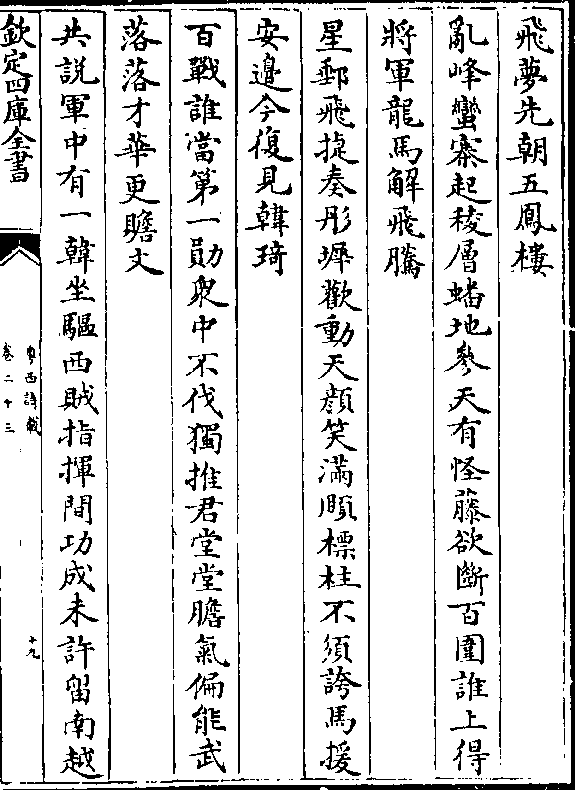 飛夢先朝五鳳樓
亂峰蠻寨起稜層蟠地參天有怪藤欲斷百圍誰上得
將軍龍馬解飛騰
星郵飛㨗奏彤墀歡動天顔笑滿頤標柱不須誇馬援
安邊今復見韓琦
百戰誰當第一勛衆中不伐獨推君堂堂膽氣偏能武
落落才華更贍文
共說軍中有一韓坐驅西賊指揮間功成未許留南越
欽定四庫全書
粤西詩載
卷二十三
十九